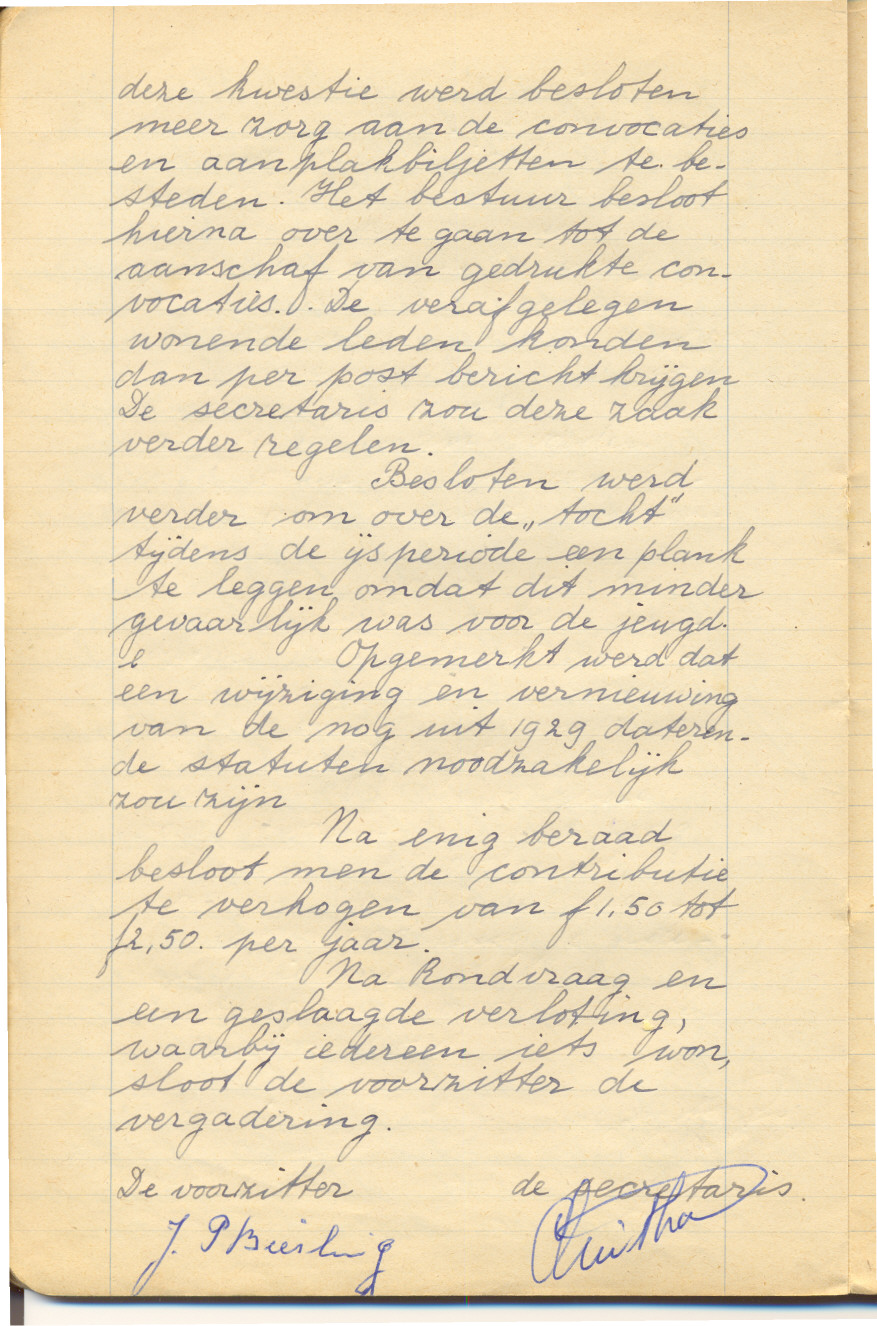 deze kwestie werd besloten
meer zorg aan de convocaties
en aanplakbiljetten te be-
steden. Het bestuur besloot
hierna over te gaan tot de
aanschaf van gedrukte con-
vocaties. De verafgelegen
wonende leden konden
dan per post bericht krijgen
De secretaris zou deze zaak
verder regelen.
Besloten werd
verder om over de „tocht"
tijdens de ijsperiode een plank
te leggen omdat dit minder
gevaarlijk was voor de jeugd.
Opgemerkt werd dat
een wijziging en vernieuwing
van de nog uit 1929 dateren-
de statuten noodzakelijk
zou zijn
Na enig beraad
besloot men de contributie
te verhogen van f 1,50 tot
f 2,50. per jaar.
Na Rondvraag en
een geslaagde verloting,
waarbij iedereen iets won,
sloot de voorzitter de
vergadering.
De voorzitter de secretaris.
J. P